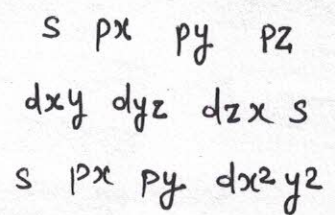 s px py pz
dxy dyz dzx s
s px py dx2 y2